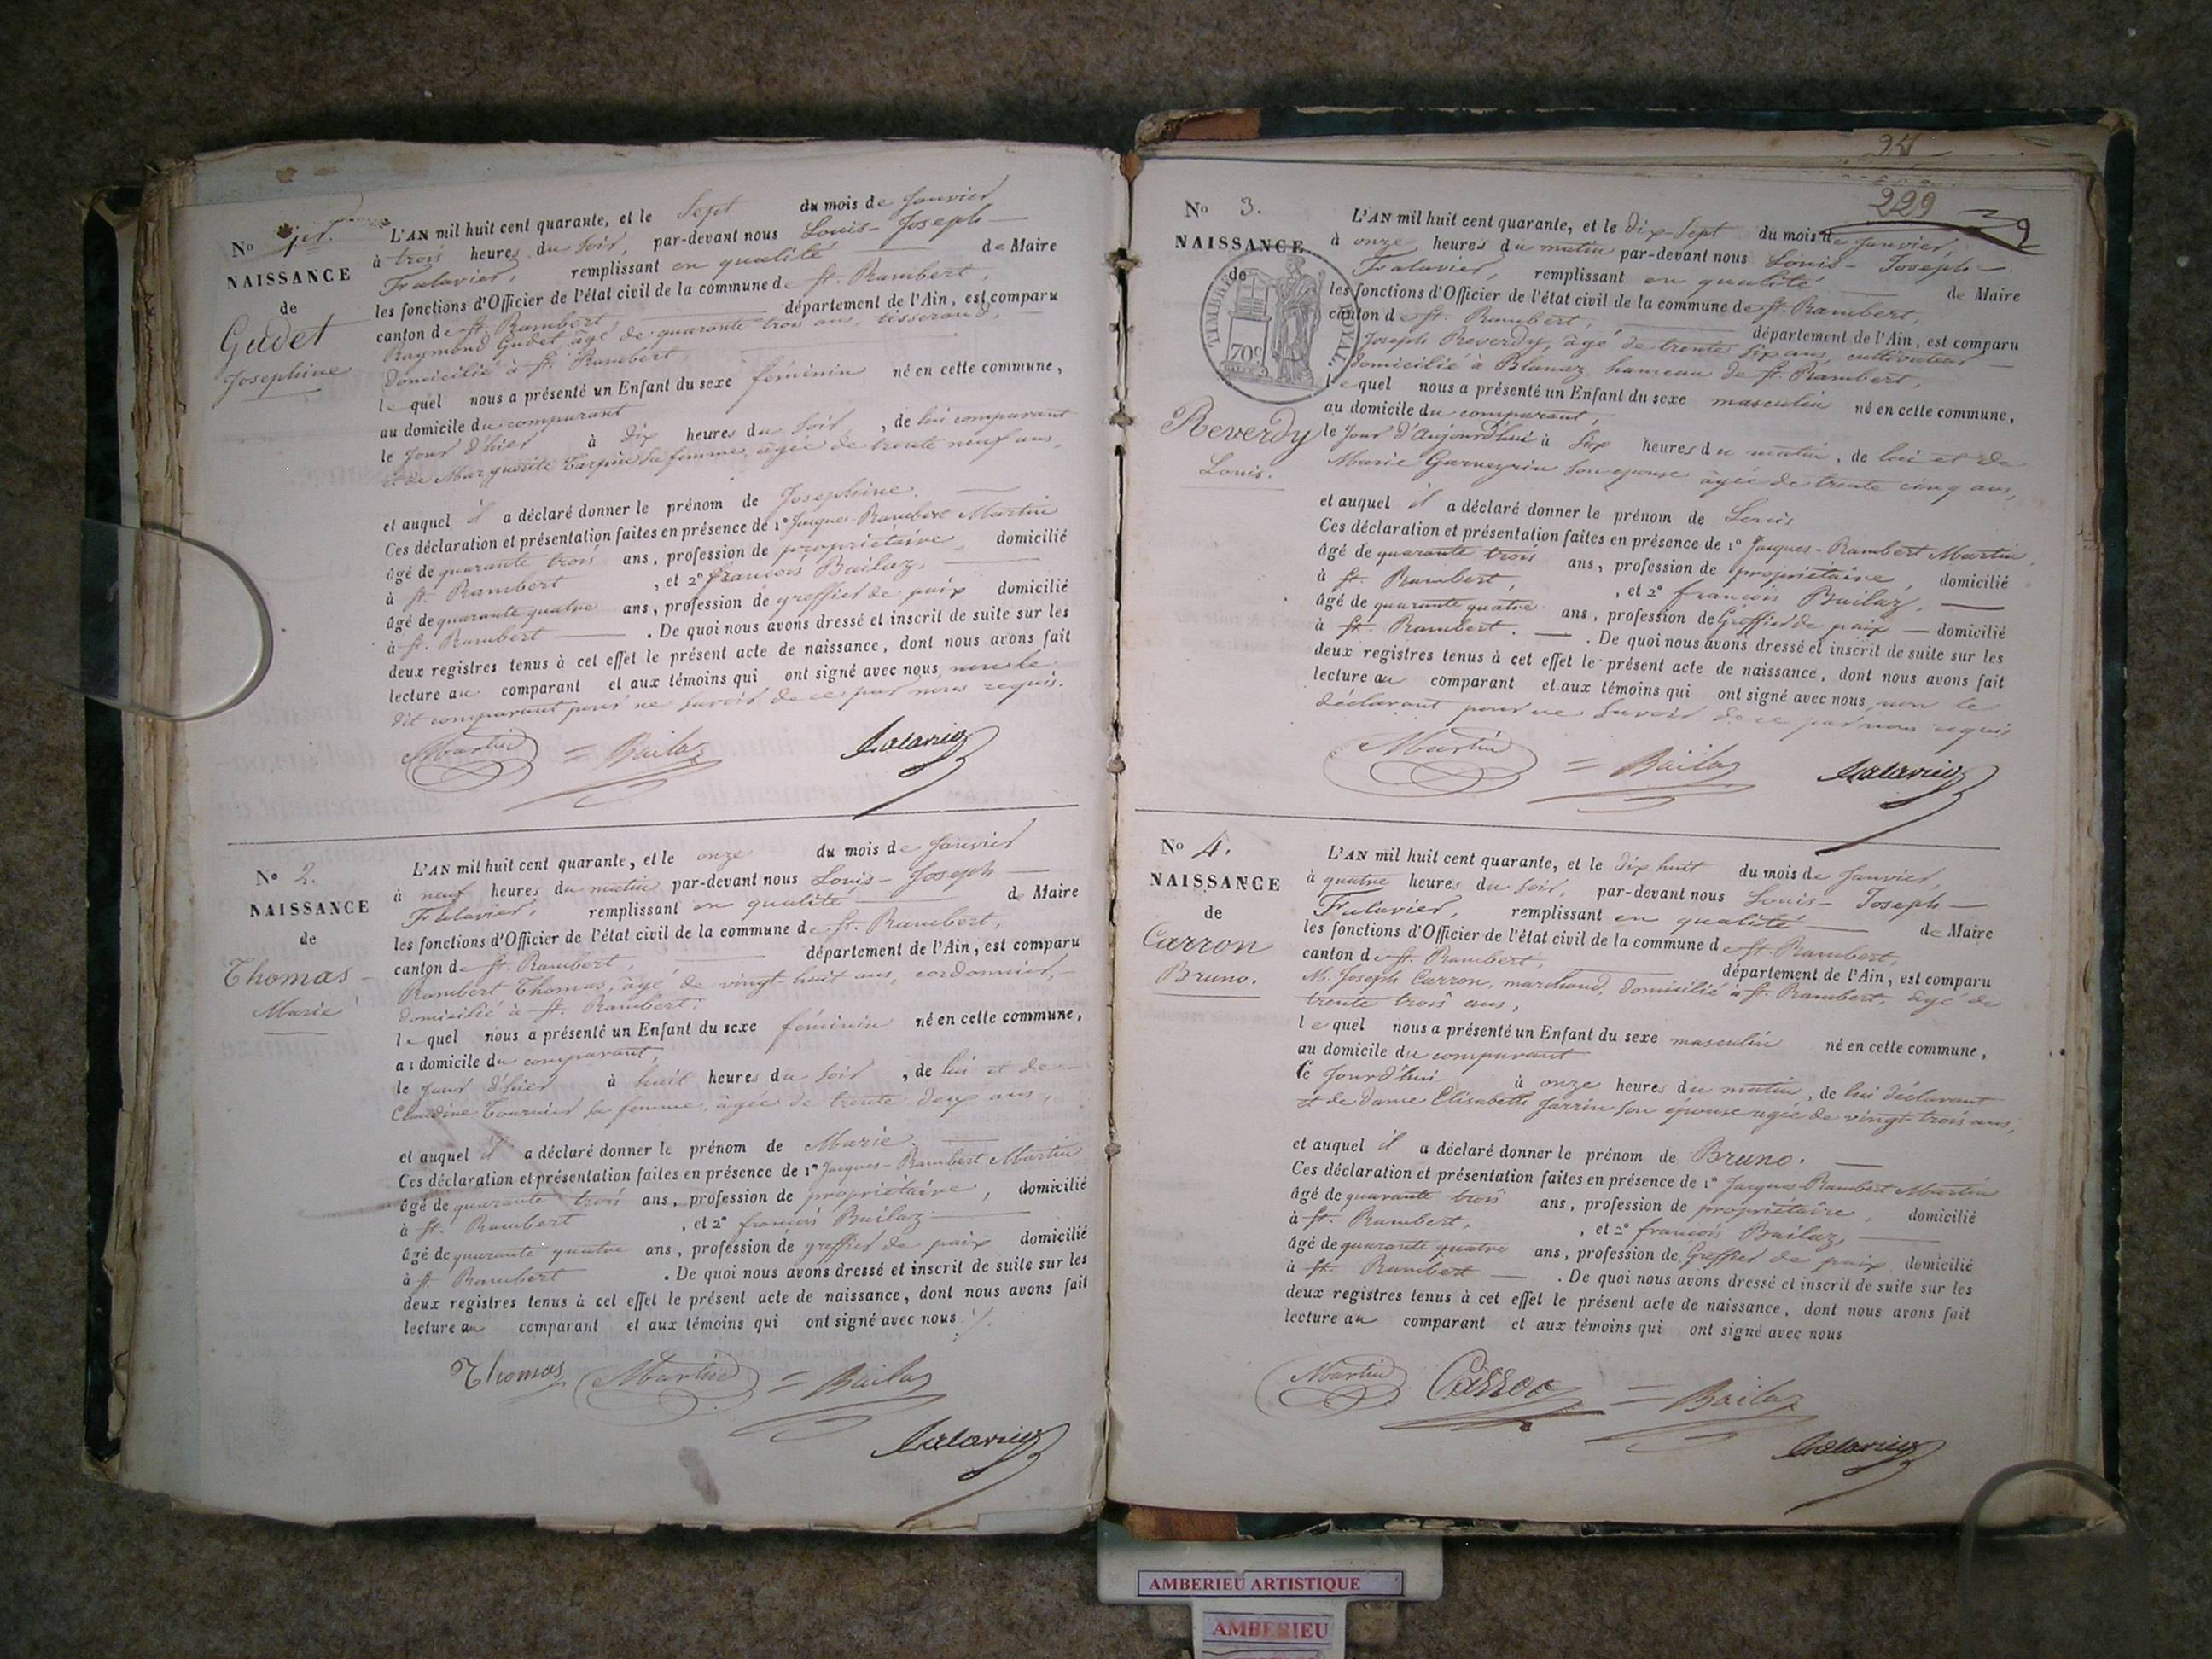 No 1er.
NAISSANCE
de
Gudet
Josephine
L'AN mil huit cent quarante, et le Sept du mois de Janvier
à trois heures du soir, par-devant nous Louis-Joseph
Falavier, remplissant en qualité de Maire
les fonctions d'Officier de l'état civil de la commune de St. Rambert,
canton de St. Rambert, département de l'Ain, est comparu
Raymond Gudet, âgé de quarante trois ans, tisserand,
domicilié à St. Rambert
lequel nous a présenté un Enfant du sexe féminin né en cette commune,
au domicile du comparant
le jour d'hier à dix heures du soir, de lui comparant
et de Marguerite Tarpin sa femme, âgée de trente neuf ans,
et auquel il a déclaré donner le prénom de Josephine.
Ces déclaration et présentation faites en présence de 1° Jacques-Rambert Martin
âgé de quarante trois ans, profession de propriétaire, domicilié
à St. Rambert, et 2° françois Bailaz,
âgé de quarante quatre ans, profession de greffier de paix domicilié
à St. Rambert. De quoi nous avons dressé et inscrit de suite sur les
deux registres tenus à cet effet le présent acte de naissance, dont nous avons fait
lecture au comparant et aux témoins qui ont signé avec nous, non le
dit comparant pour ne savoir de ce par nous requis.
Martin = Bailaz Falavier
No 2.
NAISSANCE
de
Thomas
Marie
L'AN mil huit cent quarante, et le onze du mois de Janvier
à neuf heures du matin par-devant nous Louis-Joseph
Falavier, remplissant en qualité de Maire
les fonctions d'Officier de l'état civil de la commune de St. Rambert,
canton de St. Rambert, département de l'Ain, est comparu
Rambert Thomas, âgé de vingt-huit ans, cordonnier,
domicilié à St. Rambert;
lequel nous a présenté un Enfant du sexe féminin né en cette commune,
au domicile du comparant,
le jour d'hier à huit heures du soir, de lui et de
Claudine Tournier sa femme, âgée de trente deux ans,
et auquel il a déclaré donner le prénom de Marie.
Ces déclaration et présentation faites en présence de 1° Jacques-Rambert Martin
âgé de quarante trois ans, profession de propriétaire, domicilié
à St. Rambert, et 2° françois Bailaz
âgé de quarante quatre ans, profession de greffier de paix domicilié
à St. Rambert. De quoi nous avons dressé et inscrit de suite sur les
deux registres tenus à cet effet le présent acte de naissance, dont nous avons fait
lecture au comparant et aux témoins qui ont signé avec nous
Thomas Martin = Bailaz
Falavier
229
No 3.
NAISSANCE
de
TIMBRE ROYAL
70c
Reverdy
Louis.
L'AN mil huit cent quarante, et le dix-Sept du mois de Janvier,
à onze heures du matin par-devant nous Louis-Joseph
Falavier, remplissant en qualité de Maire
les fonctions d'Officier de l'état civil de la commune de St. Rambert,
canton de St. Rambert, département de l'Ain, est comparu
Joseph Reverdy, âgé de trente six ans, cultivateur
domicilié à Blanaz hameau de St. Rambert,
lequel nous a présenté un Enfant du sexe masculin né en cette commune,
au domicile du comparant,
le jour d'aujourd'hui à six heures du matin, de lui et de
Marie Garneyrin son épouse âgée de trente cinq ans,
et auquel il a déclaré donner le prénom de Louis
Ces déclaration et présentation faites en présence de 1° Jacques-Rambert Martin,
âgé de quarante trois ans, profession de propriétaire, domicilié
à St. Rambert, et 2° françois Bailaz,
âgé de quarante quatre ans, profession de Greffier de paix domicilié
à St. Rambert. De quoi nous avons dressé et inscrit de suite sur les
deux registres tenus à cet effet le présent acte de naissance, dont nous avons fait
lecture au comparant et aux témoins qui ont signé avec nous non le
déclarant pour ne savoir de ce par nous requis
Martin = Bailaz Falavier
No 4.
NAISSANCE
de
Carron
Bruno.
L'AN mil huit cent quarante, et le dix huit du mois de Janvier,
à quatre heures du soir, par-devant nous Louis-Joseph
Falavier, remplissant en qualité de Maire
les fonctions d'Officier de l'état civil de la commune de St. Rambert,
canton de St. Rambert, département de l'Ain, est comparu
M. Joseph Carron, marchand, domicilié à St. Rambert, âgé de
trente trois ans,
lequel nous a présenté un Enfant du sexe masculin né en cette commune,
au domicile du comparant
ce jourd'hui à onze heures du matin, de lui déclarant
et de dame Elisabeth Jarrin son épouse âgée de vingt-trois ans,
et auquel il a déclaré donner le prénom de Bruno.
Ces déclaration et présentation faites en présence de 1° Jacques-Rambert Martin
âgé de quarante trois ans, profession de propriétaire, domicilié
à St. Rambert, et 2° françois Bailaz,
âgé de quarante quatre ans, profession de Greffier de paix domicilié
à St. Rambert. De quoi nous avons dressé et inscrit de suite sur les
deux registres tenus à cet effet le présent acte de naissance, dont nous avons fait
lecture au comparant et aux témoins qui ont signé avec nous
Martin Carron = Bailaz
Falavier
AMBERIEU ARTISTIQUE
AMBERIEU